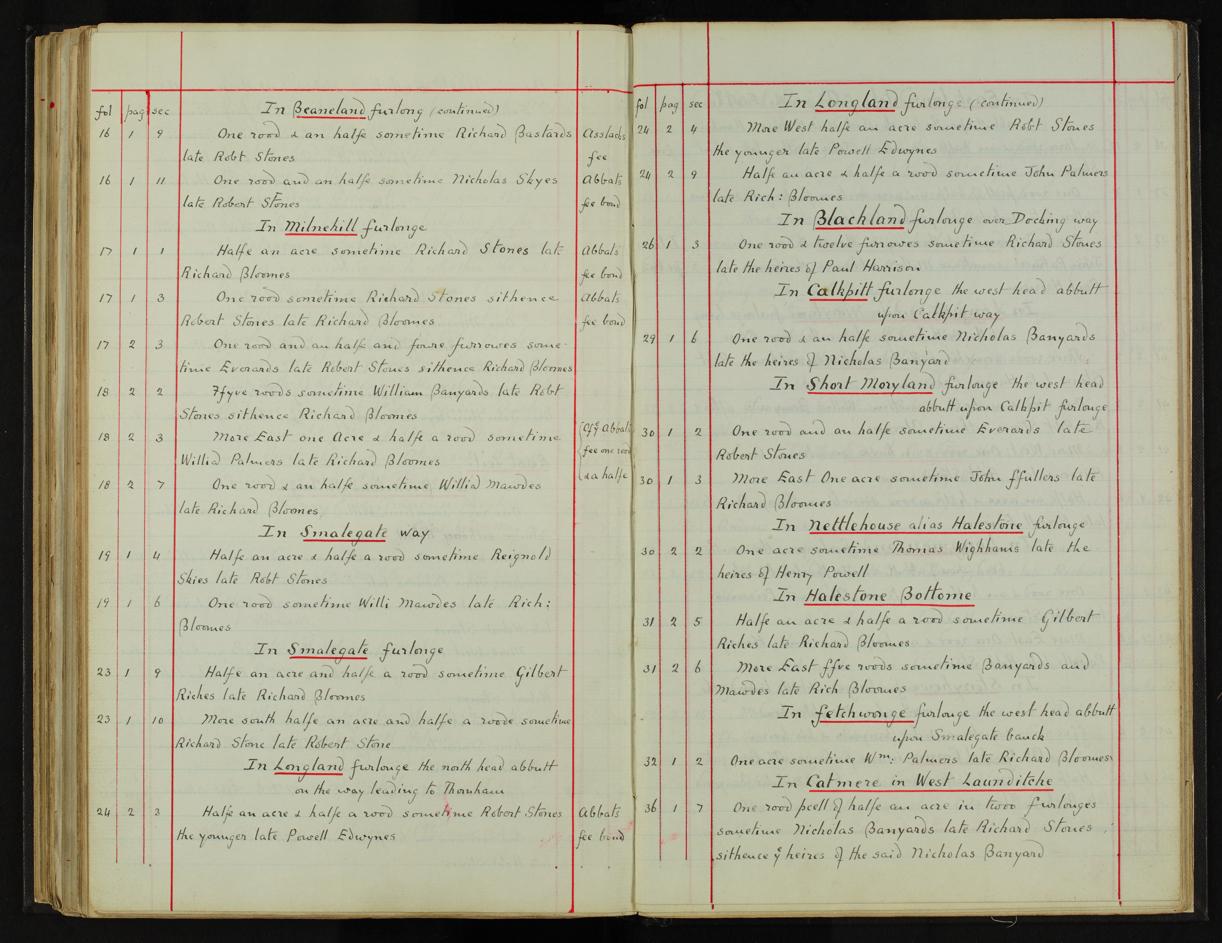 fol pag sec In Beaneland furlong (continued)
16 1 9 One rood & an halfe sometime Richard Bastards Asslacks
late Robt Stones fee
16 1 11 One rood and an halfe sometime Nicholas Skyes Abbats
late Robert Stones fee bond
In Milnehill furlonge
17 1 1 Halfe an acre sometime Richard Stones late Abbats
Richard Bloomes fee bond
17 1 3 One rood sometime Richard Stones sithence Abbats
Robert Stones late Richard Bloomes fee bond
17 2 3 One rood and an halfe and fowre furrowes some-
time Everards late Robert Stones sithence Richard Bloomes
18 2 2 Ffyve roods sometime William Banyards late Robt
Stones sithence Richard Bloomes
18 2 3 More East one Acre & halfe a rood sometime Abbats
Willia Palmers late Richard Bloomes fee one rood
18 2 7 One rood & an halfe sometime Willia Mawdes & a halfe
late Richard Bloomes
In Smalegate way
19 1 4 Halfe an acre & halfe a rood sometime Reignold
Skies late Robt Stones
19 1 6 One rood sometime Willi Mawdes late Rich:
Bloomes
In Smalegate furlonge
23 1 9 Halfe an acre and halfe a rood sometime Gilbert
Riches late Richard Bloomes
23 1 10 More south halfe an acre and halfe a roode sometime
Richard Stone late Robert Stone
In Longland furlonge the north head abbutt
on the way leading to Thornham
24 2 3 Halfe an acre & halfe a rood sometime Robert Stones Abbats
the younger late Powell Edwynes fee bond
fol pag sec In Longland furlonge (continued)
24 2 4 More West halfe an acre sometime Robt Stones
the younger late Powell Edwynes
24 2 9 Halfe an acre & halfe a rood sometime John Palmers
late Rich: Bloomes
In Blachland furlonge over Docking way
26 1 3 One rood & twelve furrowes sometime Richard Stones
late the heires of Paul Harrison
In Calkpitt furlonge the west head abbutt
upon Calkpit way
29 1 6 One rood & an halfe sometime Nicholas Banyards
late the heires of Nicholas Banyard
In Short Moryland furlonge the west head
abbutt upon Calkpit furlonge
30 1 2 One rood and an halfe sometime Everards late
Robert Stones
30 1 3 More East One acre sometime John ffullers late
Richard Bloomes
In Nettlehouse alias Halestone furlonge
30 2 2 One acre sometime Thomas Wighhams late the
heires of Henry Powell
In Halestone Bottome
31 2 5 Halfe an acre & halfe a rood sometime Gilbert
Riches late Richard Bloomes
31 2 6 More East ffve roods sometime Banyards and
Mawdes late Rich Bloomes
In fetchwonge furlonge the west head abbutt
upon Smalegate banck
32 1 2 One acre sometime Wm: Palmers late Richard Bloomes
In Catmere in West Launditche
36 1 7 One rood pcell of halfe an acre in twoo furlonges
sometime Nicholas Banyards late Richard Stones
sithence ye heires of the said Nicholas Banyard